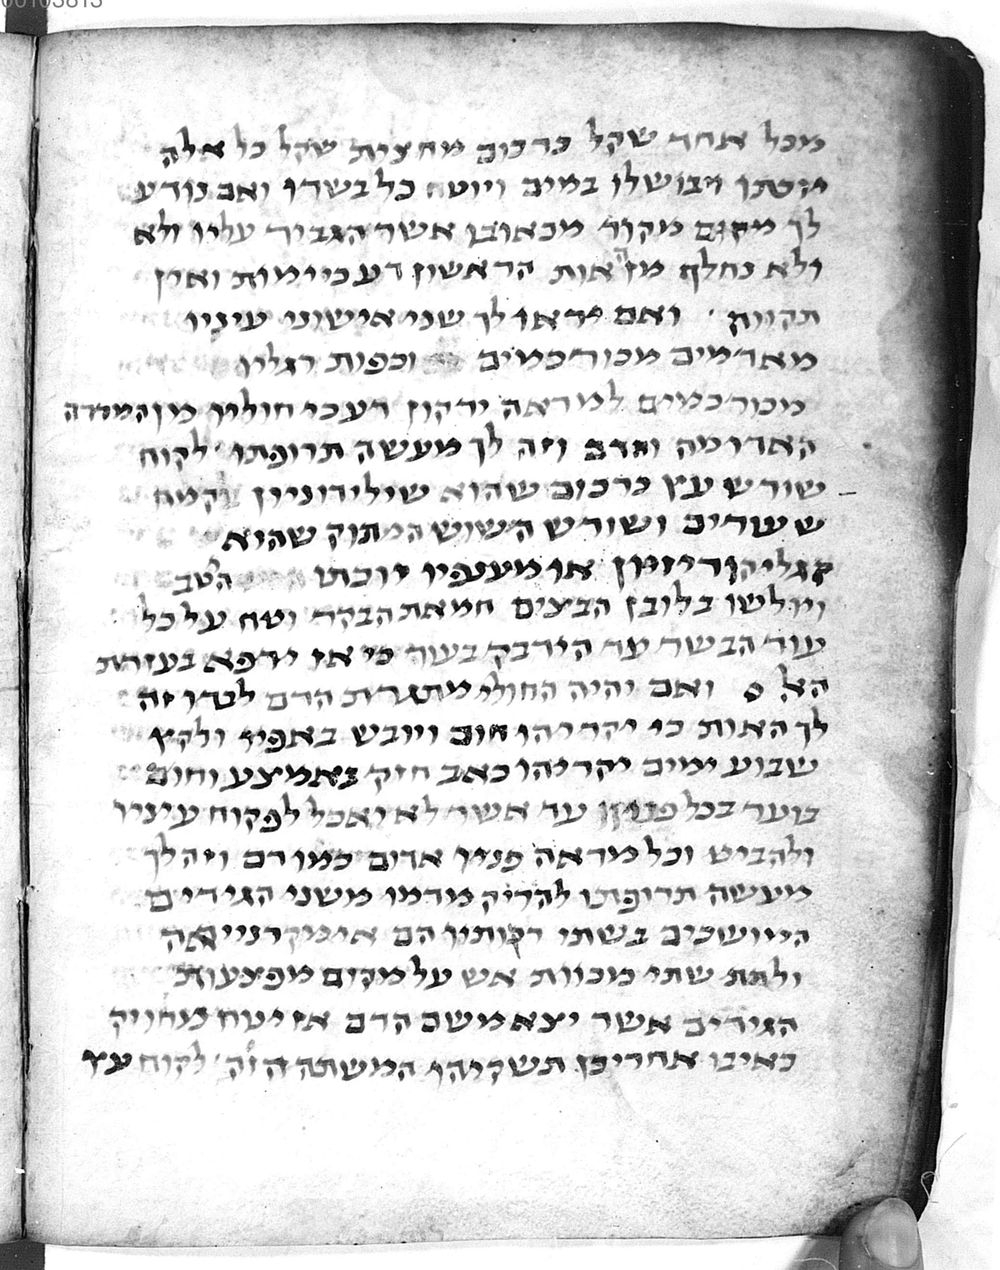 00103813
מכל אחד שקל כרכום מחצית שקל כל אלה
יוכתו ויבושלו במים ויוטח כל בשרו ואם נודע
לך מקום מקור מכאובו אשר הגביר עליו ולא
ולא נחלף מן האות הראשון דע כי ימות ואין
תקוות ואם יראו לך שני אישוני עיניו
מאדמים מכורכמים וכפות רגליו
מכורכמים למראה ירקון דע כי חוליו מן המררה
האדומה והדם וזה לך מעשה תרופתו לקוח
שורש עץ כרכום שהוא שילידוניין וקמח
שעורים ושורש השוש המתוק שהוא
או מעצפיו יוכתו הטב
ויולשו בלובן הבצים חמאת הבקר וטח על כל
עור הבשר עד הידבק בעור כי אז ירפא בעזרת
האל ואם יהיה החולי מתגרת הדם לבדו זה
לך האות כי יקריהו חום וייובש באפיו ולקץ
שבוע ימים יקריהו כאב חזק באמצע וחום
בוער בכל פניו עד אשר לא יאכל לפקוח עיניו
ולהביט וכל מראה פניו אדום כמו דם וזה לך
מעשה תרופתו להריק מדמו משני הגידים
המושכים בשתי רקותיו הם
ולתת שתי מכוות אש על מקום מפצעות
הגידים אשר יצא משם הדם אז יטח
כאיבו אחרי כן תשקיהו המשתה הזה לקוח עץ